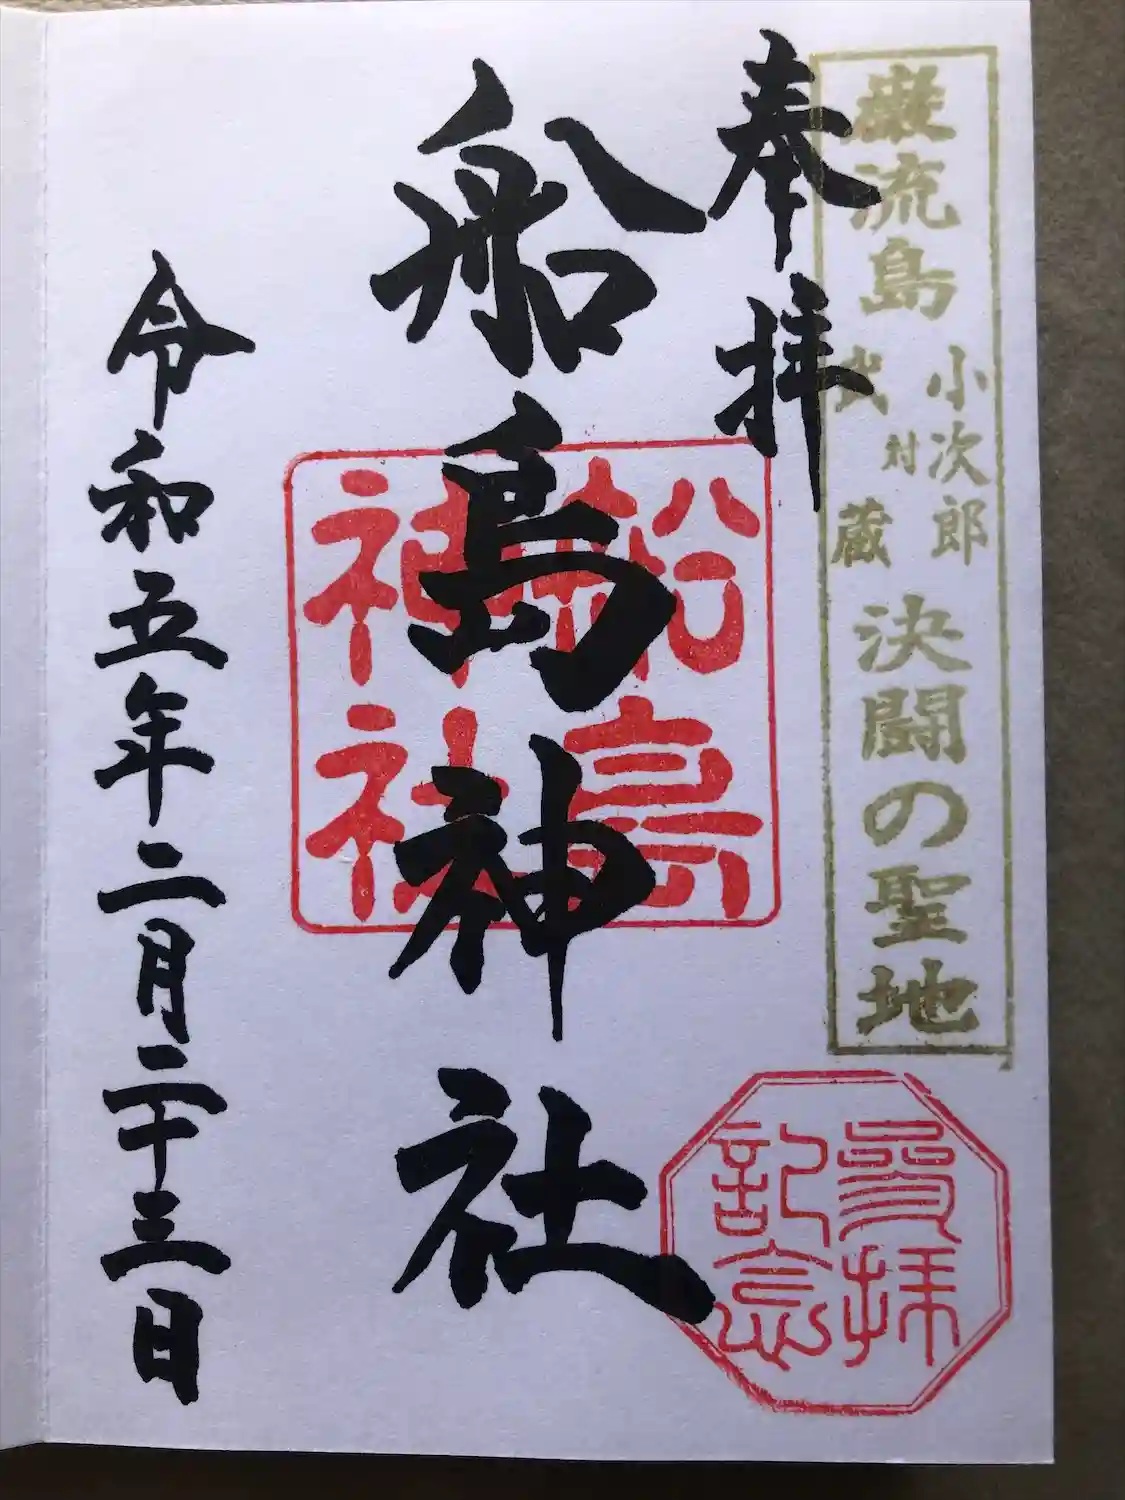 巌流島
小次郎
対
武蔵
決闘の聖地
奉拝
船島神社
船島
神社
参拝
記念
令和五年二月二十三日